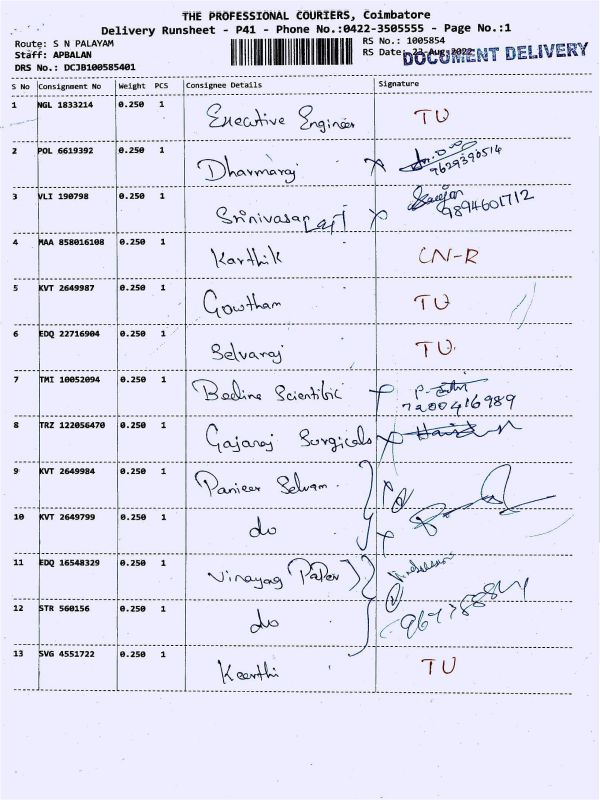 THE PROFESSIONAL COURIERS, Coimbatore
Delivery Runsheet - P41 - Phone No.:0422-3505555 - Page No.:1
Route: S N PALAYAM
RS No.: 1005854
Staff: APBALAN
RS Date: 23-Aug-2022
DOCUMENT DELIVERY
DRS No.: DCJB100585401
S No Consignment No Weight PCS Consignee Details Signature
1 NGL 1833214 0.250 1 Executive Engineer TU
2 POL 6619392 0.250 1 Dharmaraj X 9629390514
3 VLI 190798 0.250 1 Srinivasan X 9894601712
4 MAA 858016108 0.250 1 Karthik CN-R
5 KVT 2649987 0.250 1 Gowtham TU
6 EDQ 22716904 0.250 1 Selvaraj TU
7 TMI 10052094 0.250 1 Beeline Scientific 7200416989
8 TRZ 122056470 0.250 1 Gajaraj Surgicals X
9 KVT 2649984 0.250 1 Panieer Selvam X
10 KVT 2649799 0.250 1 do X
11 EDQ 16548329 0.250 1 Vinayag (Paper)
12 STR 560156 0.250 1 do
13 SVG 4551722 0.250 1 Keerthi TU